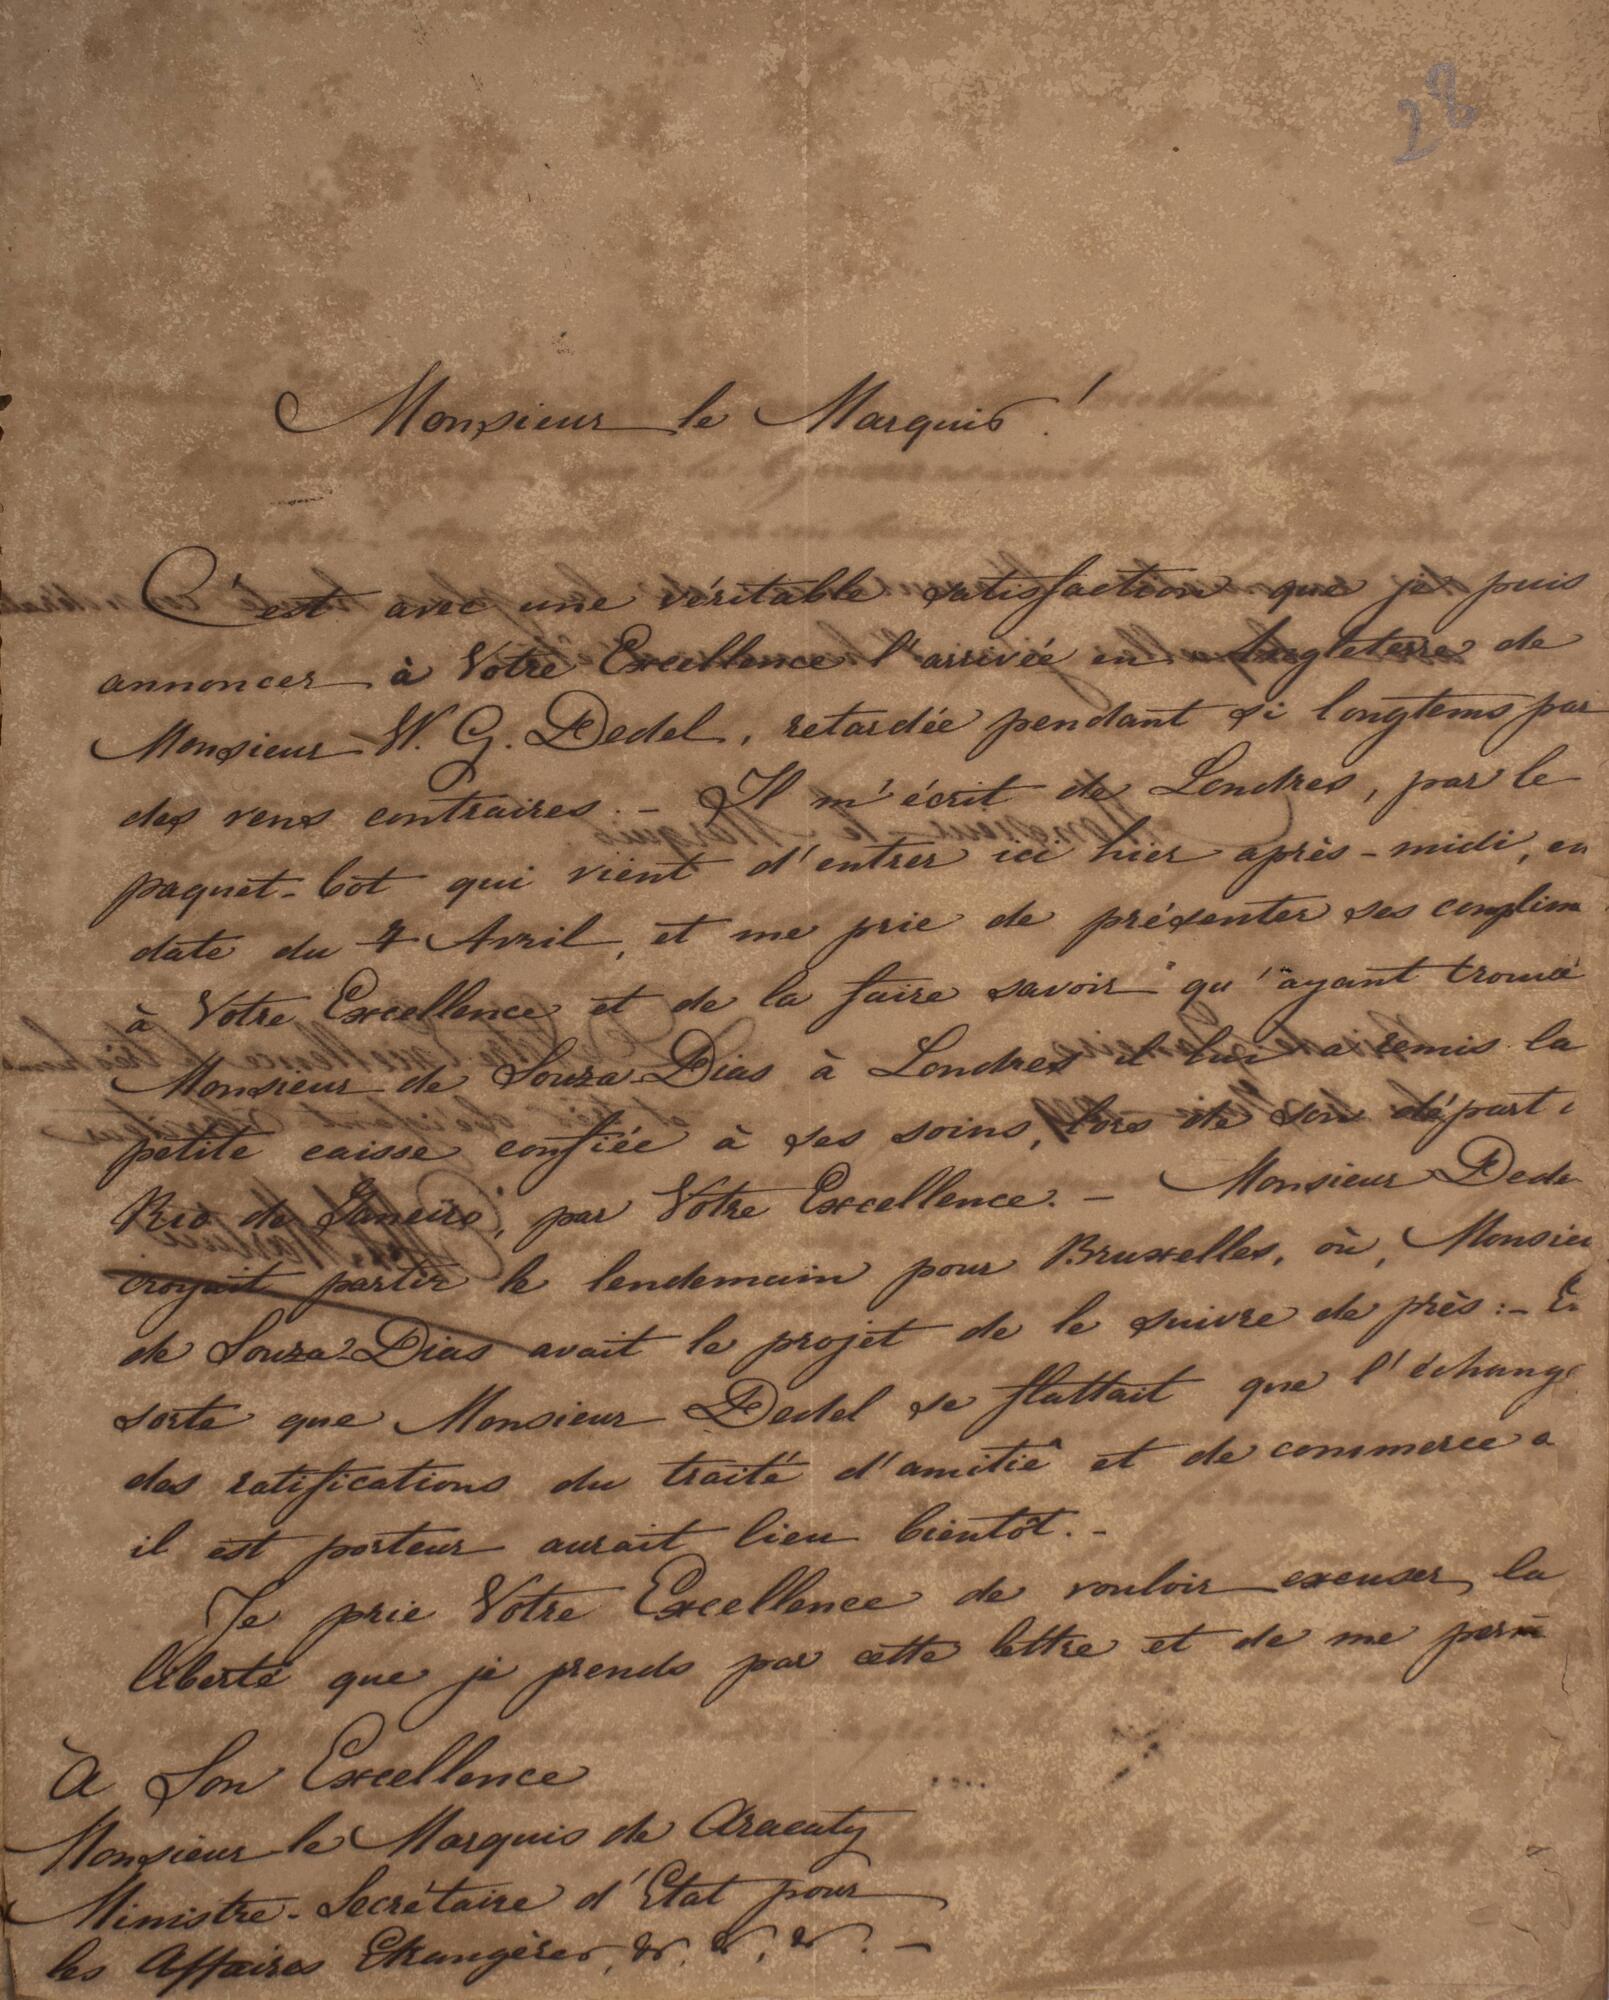 28
Monsieur le Marquis!
C'est avec une véritable satisfaction que je puis
annoncer à Votre Excellence l'arrivée en Angleterre de
Monsieur W. G. Dedel, retardée pendant si longtems par
des vens contraires. - Il m'écrit de Londres, par le
paquet-bot qui vient d'entrer ici hier après-midi, en
date du 4 Avril, et me prie de présenter ses complim
à Votre Excellence et de la faire savoir "qu'"ayant trouvé
Monsieur de Souza-Dias à Londres il lui a remis la
petite caisse confiée à ses soins, lors de son départ
Rio de Janeiro, par Votre Excellence. - Monsieur Dede
croyait partir le lendemain pour Bruxelles, où, Monsieu
de Souza-Dias avait le projet de le suivre de près: - En
sorte que Monsieur Dedel se flattait que l'échange
des ratifications du traité d'amitié et de commerce
il est porteur aurait lieu bientôt. -
Je prie Votre Excellence de vouloir excuser la
liberté que je prends par cette lettre et de me perm
À Son Excellence
Monsieur le Marquis de Aracaty
Ministre-Secrétaire d'Etat pour
les Affaires Etrangères, &. &. &. -